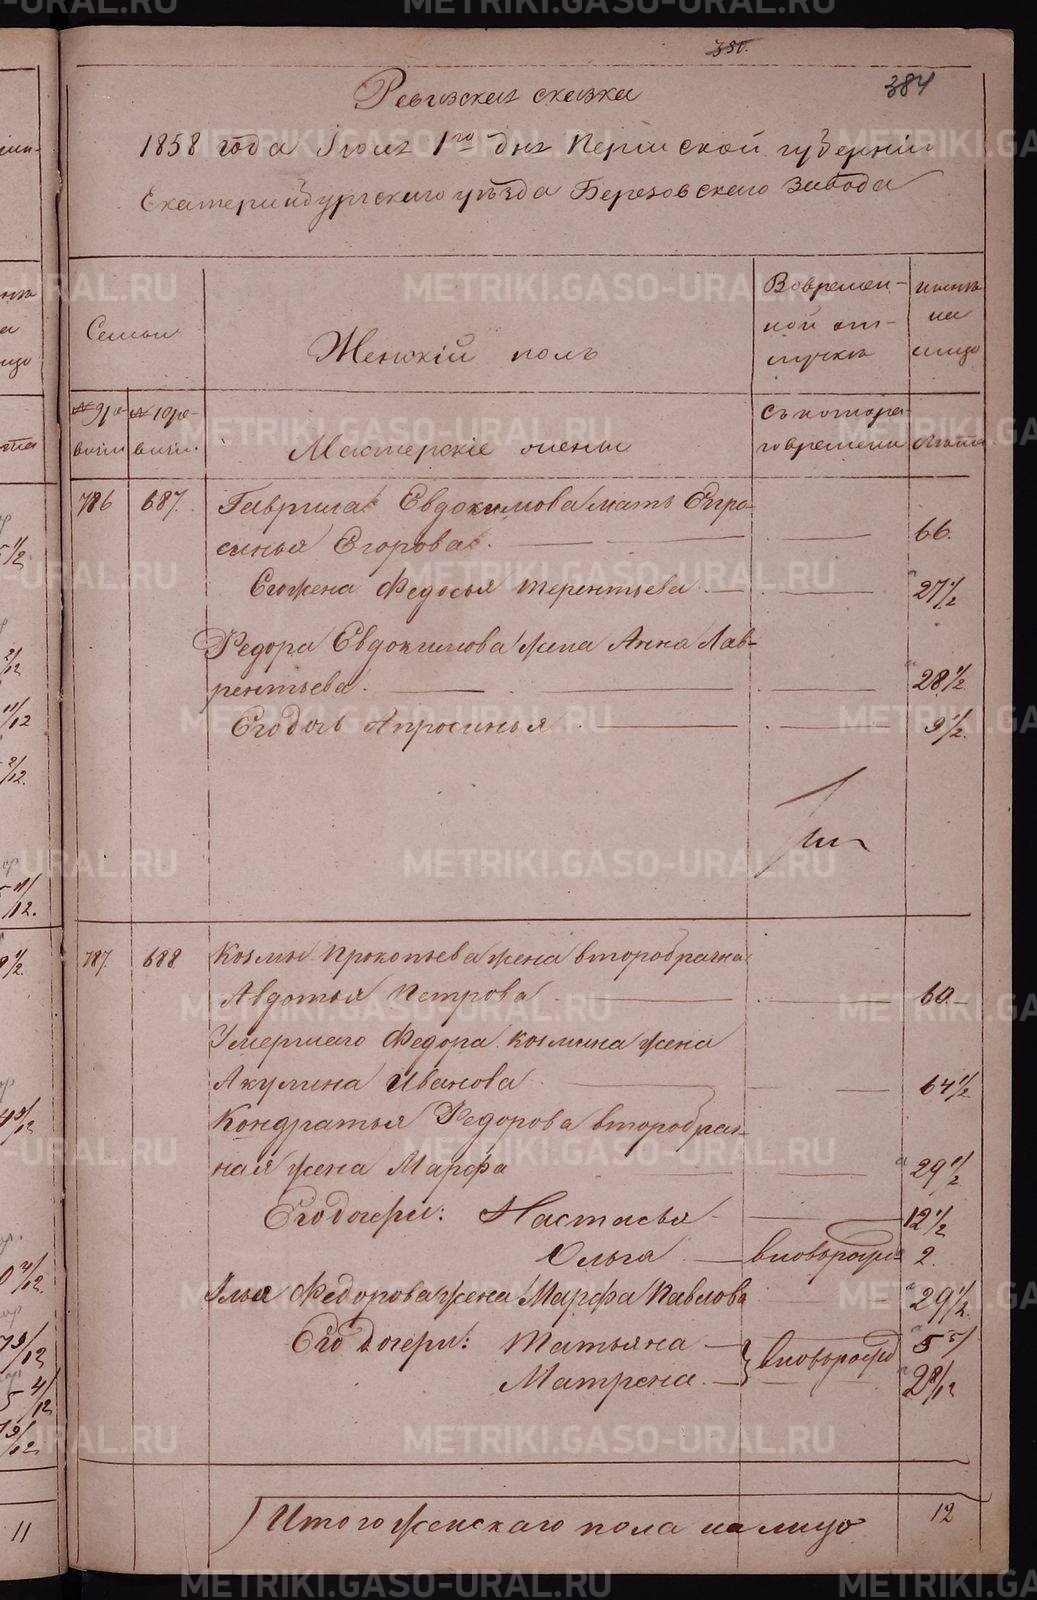 350.
384
Ревизская сказка
1858 года Июля 1го дня Пермской губерніи
Екатеринбургскаго уѣзда Березовскаго завода
Семьи
Женскій полъ
Вовремен-
ной от-
лучкѣ
ныне
на
лицо
№ 9 ре-
визіи
№ 10 ре-
визіи.
Мастерскіе
съ котора-
го времени
Лѣта
786 687. Гаврила Евдокимова мать Ефро-
синья Егорова. 66.
Его жена Федосья Терентьева 27 1/2
Федора Евдокимова жена Анна Лав-
рентьева. 28 1/2
Его дочь Апросинья 9 1/2.
787. 688 Козмы Прокопьева жена второбрачна
Авдотья Петрова 60.
Умершаго Федора Козмина жена
Акулина Иванова 64 1/2
Кондратья Федорова второбрач-
ная жена Марфа 29 1/2
Его дочери: Настасья 12 1/2
Ольга вновьрожд 2.
Илья Федорова жена Марфа Павлова 29 1/2.
Его дочери: Татьяна 5
Матрена. вновьрожд 2 8/12
Итого женскаго пола на лицо 12
11
METRIKI.GASO-URAL.RU